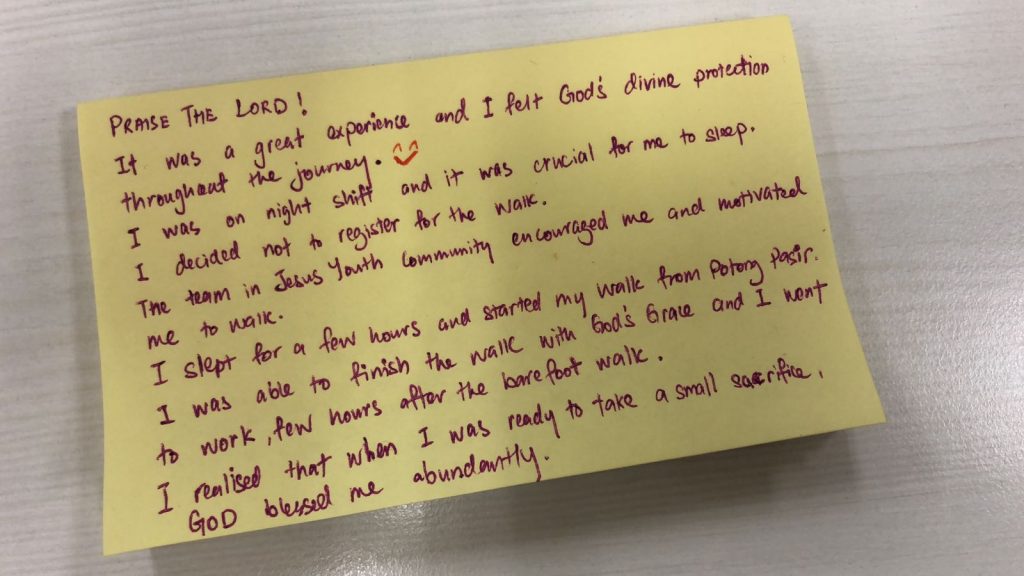 PRAISE THE LORD!
It was a great experience and I felt God's divine protection
throughout the journey.
I was on night shift and it was crucial for me to sleep.
I decided not to register for the walk.
The team in Jesus Youth Community encouraged me and motivated
me to walk.
I slept for a few hours and started my walk from Potong Pasir.
I was able to finish the walk with God's Grace and I went
to work, few hours after the barefoot walk.
I realised that when I was ready to take a small sacrifice,
GOD blessed me abundantly.